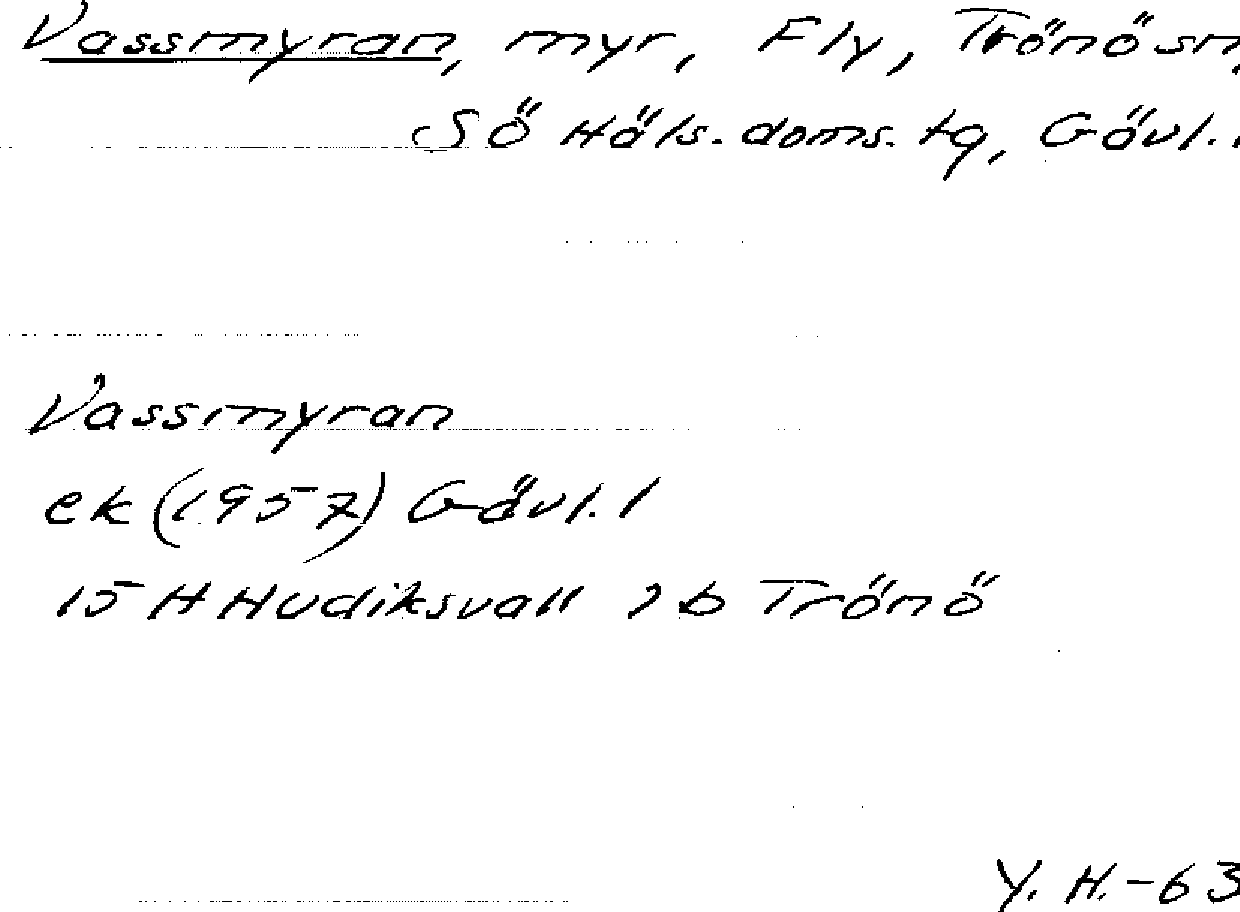 Vassmyran, myr, Fly, Trönö sn,
Sö Häls. doms. tg, Gävl. l
Vassmyran
ek (1957) Gävl. l
15 H Hudiksvall 2b Trönö
Y. H. - 63